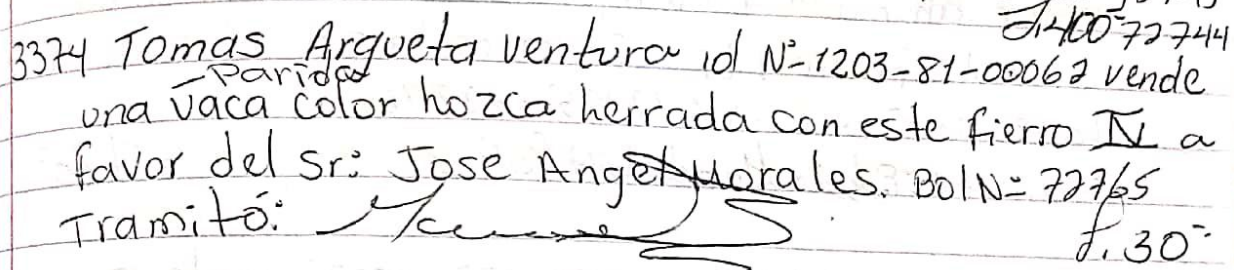 L.400- 72744
3374 Tomas Argueta ventura id Nº-1203-81-00062 vende
Parida
una vaca color hozca herrada con este fierro IN a
favor del Sr: Jose Angel Morales. Bol N= 72765
Tramitó:
L.30-